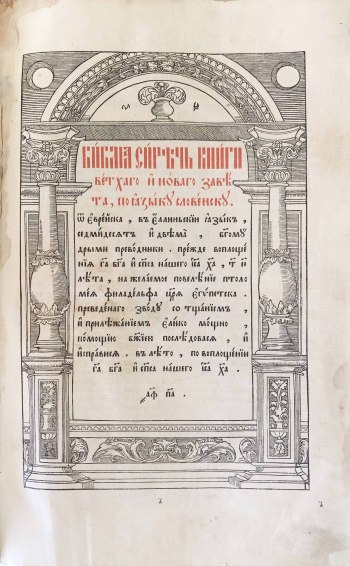 Би́блїа си́рѣчь кни́ги
ве́тхаго и҆ но́ваго завѣ́-
та, по ꙗ҆зы́кꙋ слове́нскꙋ.
ѿ є҆вре́йска, въ є҆́ллиньскїи ꙗ҆зы́къ,
седмидесѧ́тъ и҆ двѣма̀, бг҃омꙋ́
дрыми преводники. прежде воплоще
нїѧ га҃ бг҃а и҆ сп҃са нашего і҆и҃са хр҃та̀, т҃ и҆
лѣ́та, на жела́емое повелѣ́нїе птоло
ме́ѧ филаде́льфа цр҃ѧ̀ є҆гѵ́петска.
преведе́наго зводꙋ со тща́нїемъ,
и҆ прилѣжа́нїемъ є҆ли́ко мо́щно,
по́мощїю бж҃їею послѣ́довасѧ, и҆
и҆спра́висѧ. въ лѣ́то, по воплоще́нїи
га҃ бг҃а и҆ сп҃са на́шего і҆и҃са ха҃.
҂аф҃ п҃а.